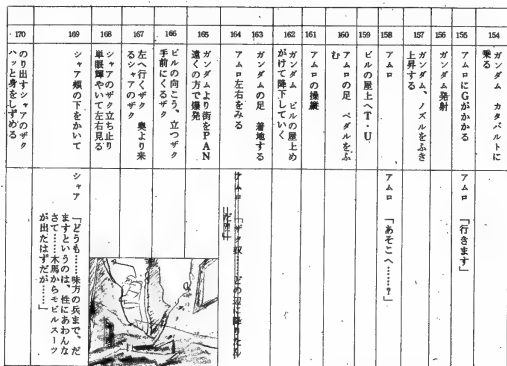 154
ガンダム カタパルトに
乗る
155
アムロにGがかかる
アムロ 「行きます」
156
ガンダム発射
157
ガンダム、ノズルをふき
上昇する
158
アムロ
アムロ 「あそこへ……?」
159
ビルの屋上へT・U
160
アムロの足 ペダルをふ
む
161
アムロの操縦
162
ガンダム ビルの屋上め
がけて降下していく
163
ガンダムの足 着地する
164
アムロ左右をみる
アムロ 「ザク奴……どの辺に降りたん
165
ガンダムより街をPAN
遠くの方で爆発
166
ビルの向こう、立つザク
手前にくるザク
167
左へ行くザク 奥より来
るシャアのザク
168
シャアのザク立ち止り
単眼輝やいて左右見る
169
シャア頬の下をかいて
シャア 「どうも……味方の兵まで、だ
ますというのは、性にあわんな
さて……木馬からモビルスーツ
が出たはずだが……」
170
のり出すシャアのザク
ハッと身をしずめる